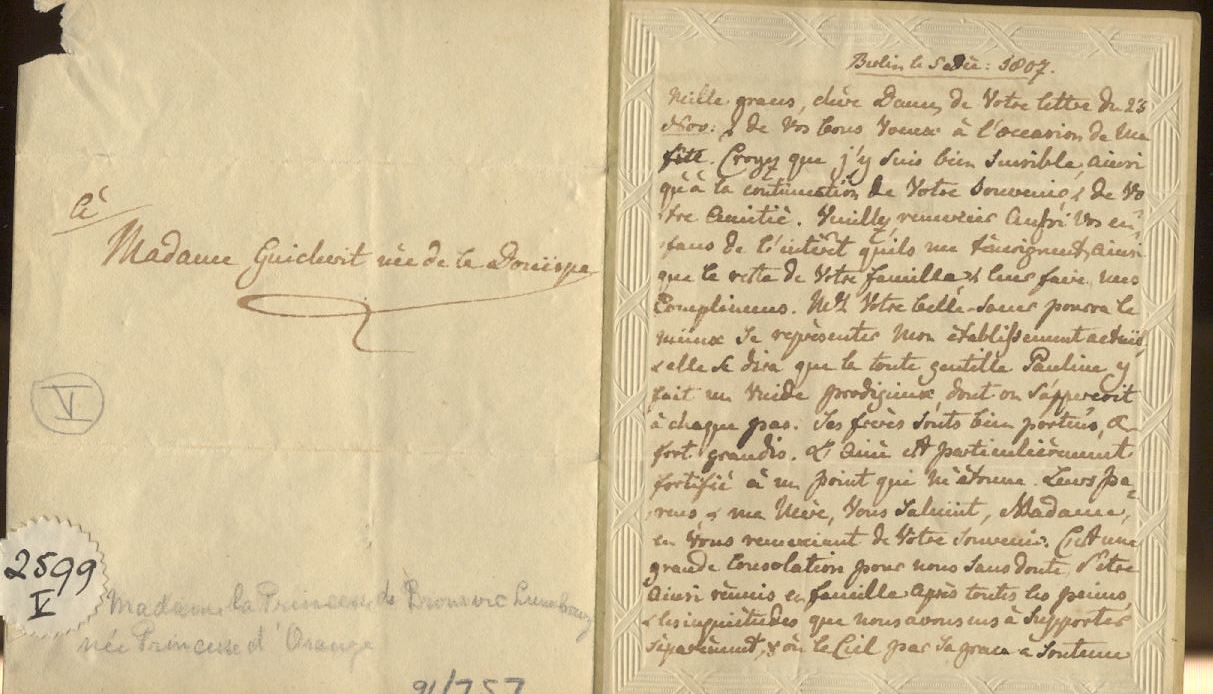 à
Madame Guicherit née de la
V
2599
V
Madame la Princesse de Bronsvic Lunebourg
née Princesse d'Orange
91/757
Berlin le 5 Déc: 1807.
Mille graces, chère Dame, de Votre lettre du 23
Nov: & de Vos bons Voeux à l'occasion de ma
fête. Croyez que j'y suis bien sensible, ainsi
qu'à la continuation de Votre Souvenir, & de Vo
tre Amitié. Veuillez remercier aussi Vos en¬
fans de l'intérêt qu'ils me témoignent, ainsi
que le reste de Votre famille, & leur faire mes
Complimens. Votre belle-Soeur pourra le
mieux se représenter mon établissement actuel,
& elle se dira que la toute gentille Pauline y
fait un vuide prodigieux, dont on s'apperçoit
à chaque pas. Ses frères sont bien portens, &
fort grandis. L'Ainé est particulièrement
fortifié à un point qui m'étonne. Leurs pa¬
rens & ma Mère, Vous saluent, Madame,
en Vous remerciant de Votre Souvenir. C'est une
grande Consolation pour nous sans doute, d'être
ainsi réunis en famille après toutes les peines,
& les inquiétudes que nous avons eus à supporter
séparément, & où le Ciel par sa grace a soutenu